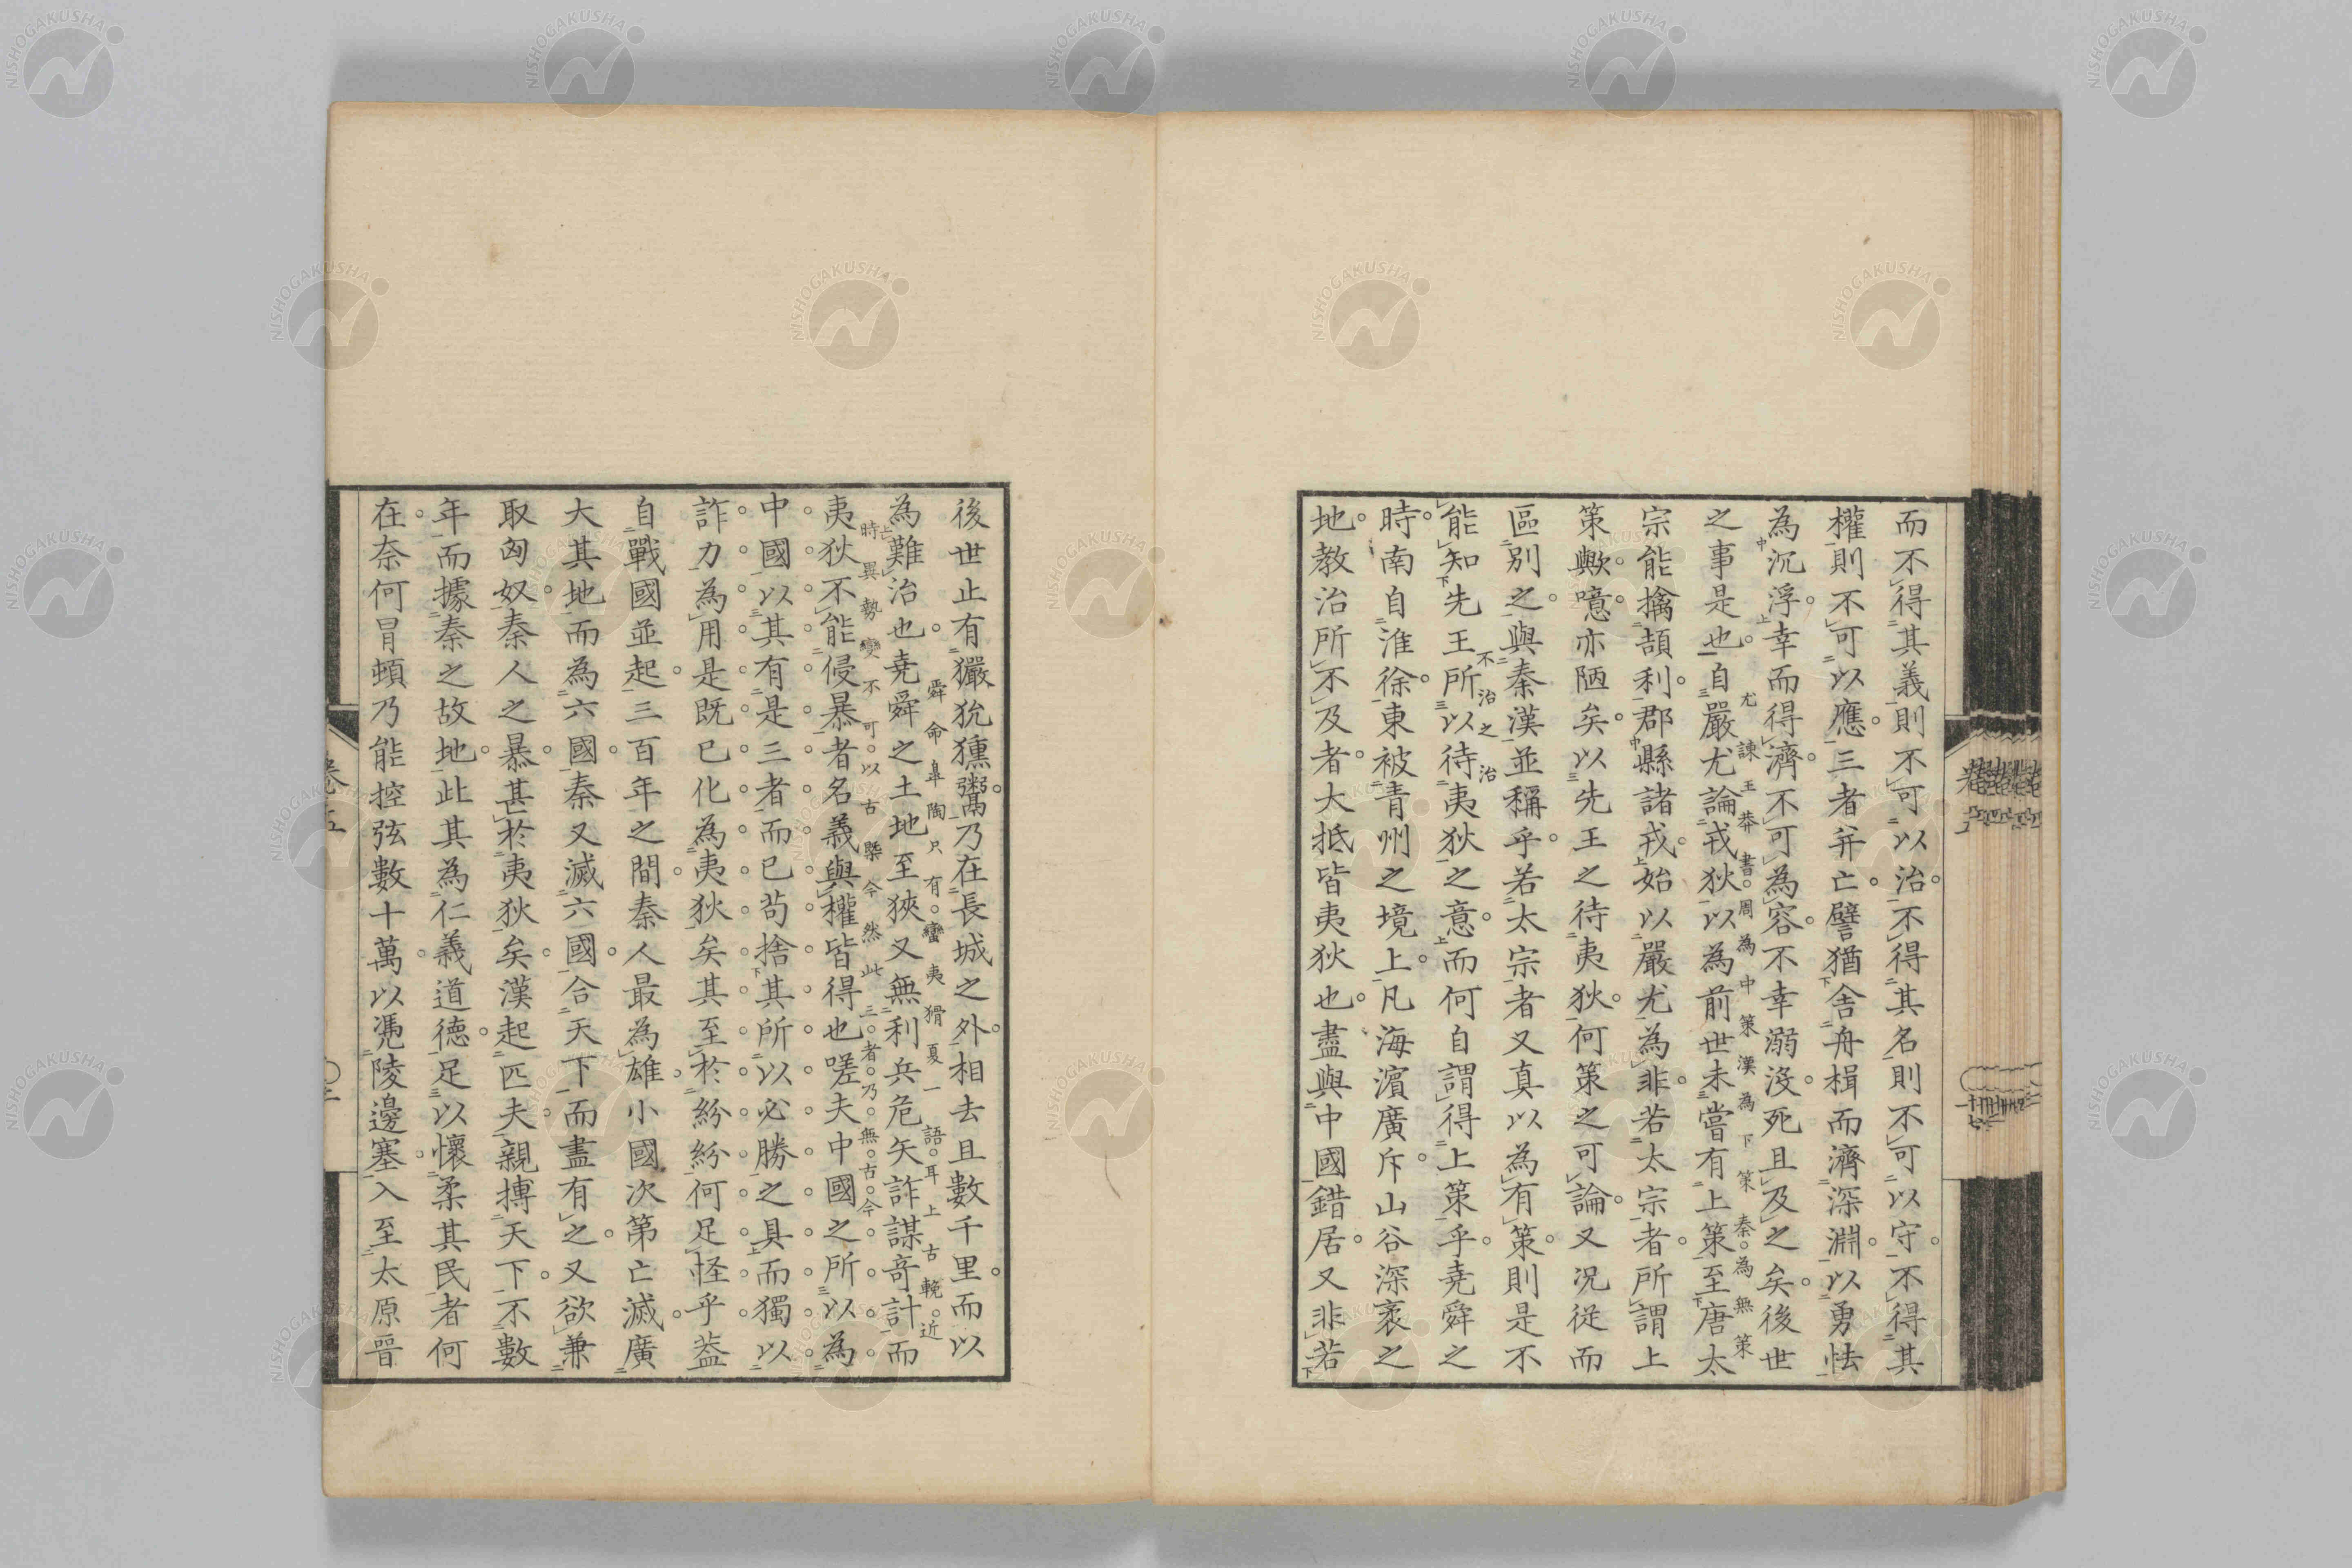 而不得其義則不可以治不得其名則不可以守不得其
權則不可以應三者弃亡譬猶舍舟楫而濟深淵以勇怯
為沉浮幸而得濟不可為容不幸溺沒死且及之矣後世
尤諫王莽書周為中策漢為下策秦為無策
之事是也自嚴尤論戎狄以為前世未嘗有上策至唐太
宗能擒頡利郡縣諸戎始以嚴尤為非若太宗者所謂上
策歟噫亦陋矣以先王之待夷狄何策之可論又況從而
區別之與秦漢並稱乎若太宗者又真以為有策則是不
不治之治
能知先王所以待夷狄之意而何自謂得上策乎堯舜之
時南自淮徐東被青州之境上凡海濱廣斥山谷深裹之
地教治所不及者大抵皆夷狄也盡與中國錯居又非若
後世止有玁狁獯鬻乃在長城之外相去且數千里而以
舜命皐陶只有蠻夷猾夏一語耳上古輓近
為難治也堯舜之土地至狹又無利兵危矢詐謀奇計而
時異勢變不可以古槩今然此三者乃無古今
夷狄不能侵暴者名義與權皆得也嗟夫中國之所以為
中國以其有是三者而已苟捨其所以必勝之具而獨以
詐力為用是既已化為夷狄矣其至於紛紛何足怪乎蓋
自戰國並起三百年之間秦人最為雄小國次第亡滅廣
大其地而為六國秦又滅六國合天下而盡有之又欲兼
取匈奴秦人之暴甚於夷狄矣漢起匹夫親摶天下不數
年而據秦之故地此其為仁義道德足以懷柔其民者何
在奈何冒頓乃能控弦數十萬以凴陵邊塞入至太原晉
卷五
NISHOGAKUSHA